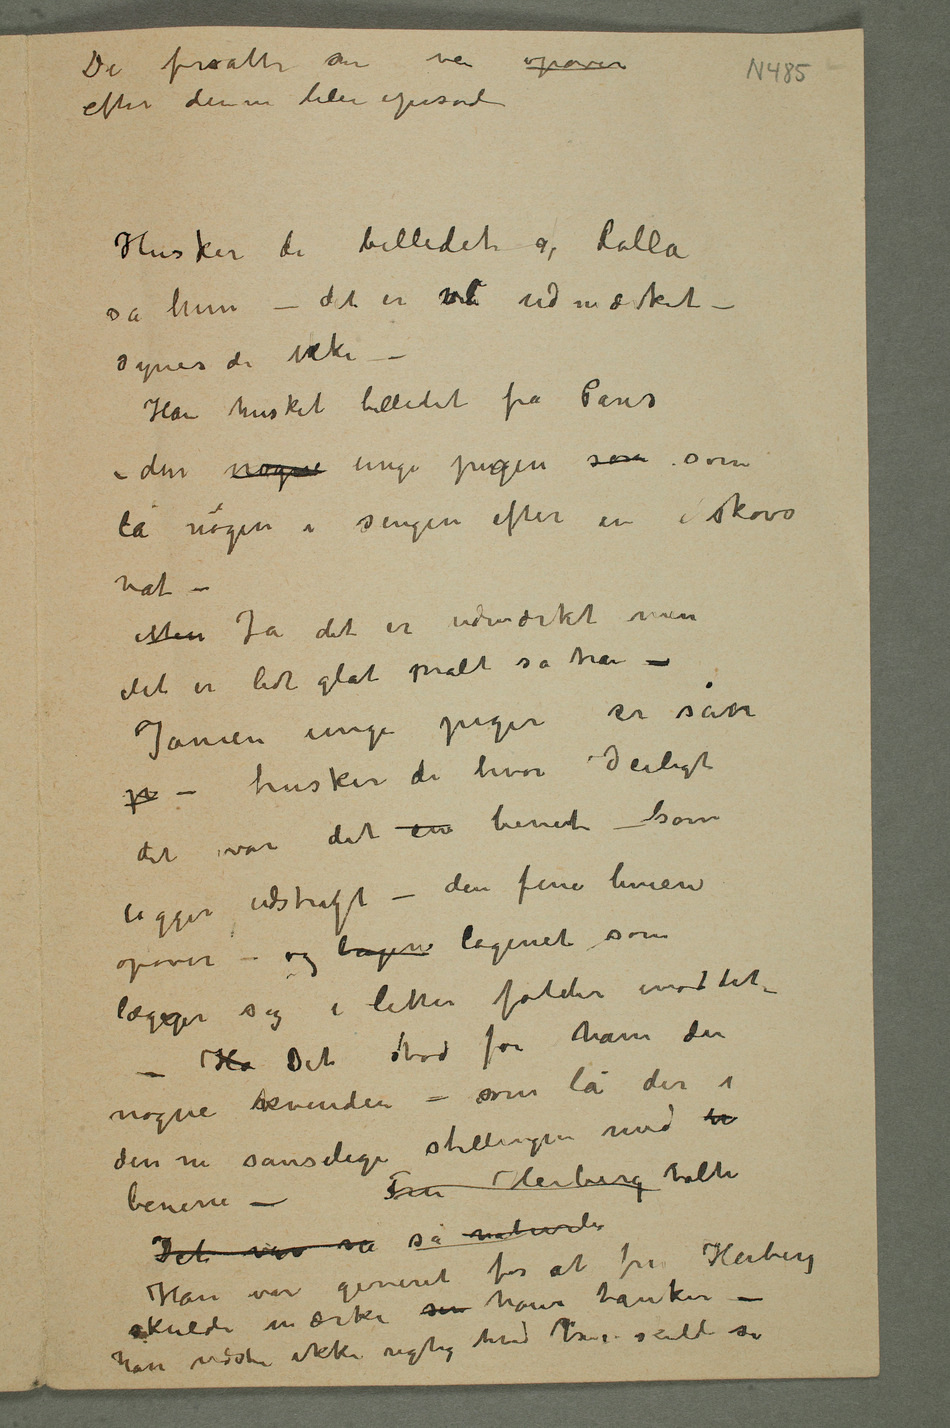 De forsatte sin vei opover
N485
efter denne lille episode
Husker de billedet af Rolla
sa hun – det er vel udmærket –
synes de ikke –
Han husket billedet fra Paris
– den nøgne unge pigen som som
lå nøgen i sengen efter en skovs
nat –
Men Ja det er udmærkt men
det er lidt glat malt sa han –
Jamen unge piger er sån
p – husker de hvor deiligt
det var det en benet – som
ligger udstragt – den fine linien
opover – og lagen lagenet som
lægger sig i lette folder imod det –
– Ha Det stod for ham den
nøgne kvinden – som lå der i
denne sanselige stillingen med
benene – Fru Heiberg talte
Det var så så naturlig
Han var generet for at fru Heiberg
skulde mærke sin hans tanker –
han vidste ikke rigtig hvad han skuld si